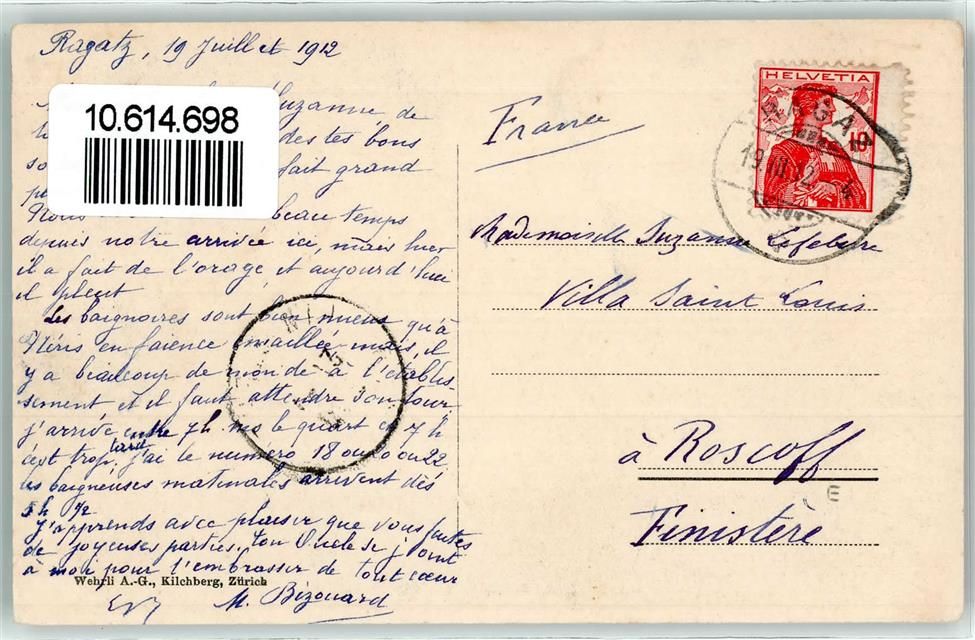 Ragatz, 19 Juillet 1912
10.614.698
Suzanne de
des tes bons
fait grand
beau temps
depuis notre arrivée ici, mais hier
il a fait de l'orage, et aujourd'hui
il pleut
Les baignoires sont bien mieux qu'à
Néris en faïence émaillée mais, il
y a beaucoup de monde à l'établis-
sement et il faut attendre son tour
j'arrive entre 7h ms le quart et 7h
c'est trop tard, j'ai le numéro 18 ou 20 ou 22,
les baigneuses matinales arrivent dès
5h 1/2
J'apprends avec plaisir que vous faites
de joyeuses parties. ton Oncle se joint
à moi pour t'embrasser de tout cœur
Wehrli A.-G., Kilchberg, Zürich
M. Bizouard
France
HELVETIA
10
RAGAZ
19.VII.12
Mademoiselle Suzanne Lefebvre
Villa Saint Louis
à Roscoff
Finistère